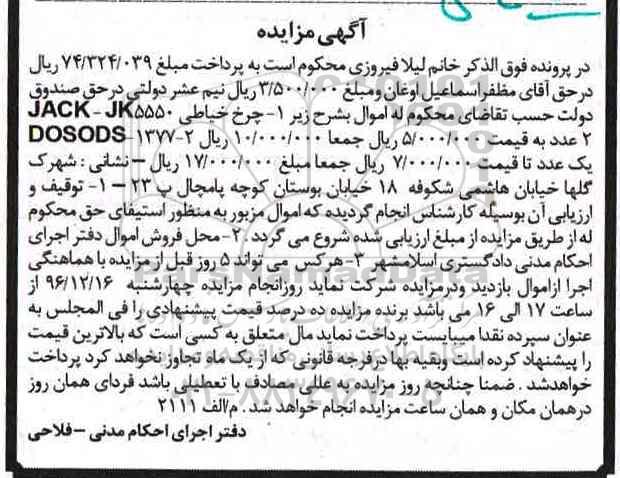 آگهی مزایده
در پرونده فوق الذکر خانم لیلا فیروزی محکوم است به پرداخت مبلغ ۷۴/۳۲۴/۰۳۹ ریال
درحق آقای مظفراسماعیل اوغان ومبلغ ۳/۵۰۰/۰۰۰ ریال نیم عشر دولتی درحق صندوق
دولت حسب تقاضای محکوم له اموال بشرح زیر ۱-چرخ خیاطی JACK - JK۵۵۵۰
۲ عدد به قیمت ۵/۰۰۰/۰۰۰ ریال جمعا ۱۰/۰۰۰/۰۰۰ ریال ۲-۱۳۷۷-DOSODS
یک عدد تا قیمت ۷/۰۰۰/۰۰۰ ریال جمعا مبلغ ۱۷/۰۰۰/۰۰۰ ریال – نشانی : شهرک
گلها خیابان هاشمی شکوفه ۱۸ خیابان بوستان کوچه پامچال پ ۲۳ – ۱- توقیف و
ارزیابی آن بوسیله کارشناس انجام گردیده که اموال مزبور به منظور استیفای حق محکوم
له از طریق مزایده از مبلغ ارزیابی شده شروع می گردد .۲-محل فروش اموال دفتر اجرای
احکام مدنی دادگستری اسلامشهر ۳-هرکس می تواند ۵ روز قبل از مزایده با هماهنگی
اجرا ازاموال بازدید ودرمزایده شرکت نماید روزانجام مزایده چهارشنبه ۹۶/۱۲/۱۶ از
ساعت ۱۷ الی ۱۶ می باشد برنده مزایده ده درصد قیمت پیشنهادی را فی المجلس به
عنوان سپرده نقدا میبایست پرداخت نماید مال متعلق به کسی است که بالاترین قیمت
را پیشنهاد کرده است وبقیه بها درفرجه قانونی که از یک ماه تجاوز نخواهد کرد پرداخت
خواهدشد . ضمنا چنانچه روز مزایده به عللی مصادف با تعطیلی باشد فردای همان روز
درهمان مکان و همان ساعت مزایده انجام خواهد شد . م/الف ۲۱۱۱
دفتر اجرای احکام مدنی –فلاحی
ParsNamadData